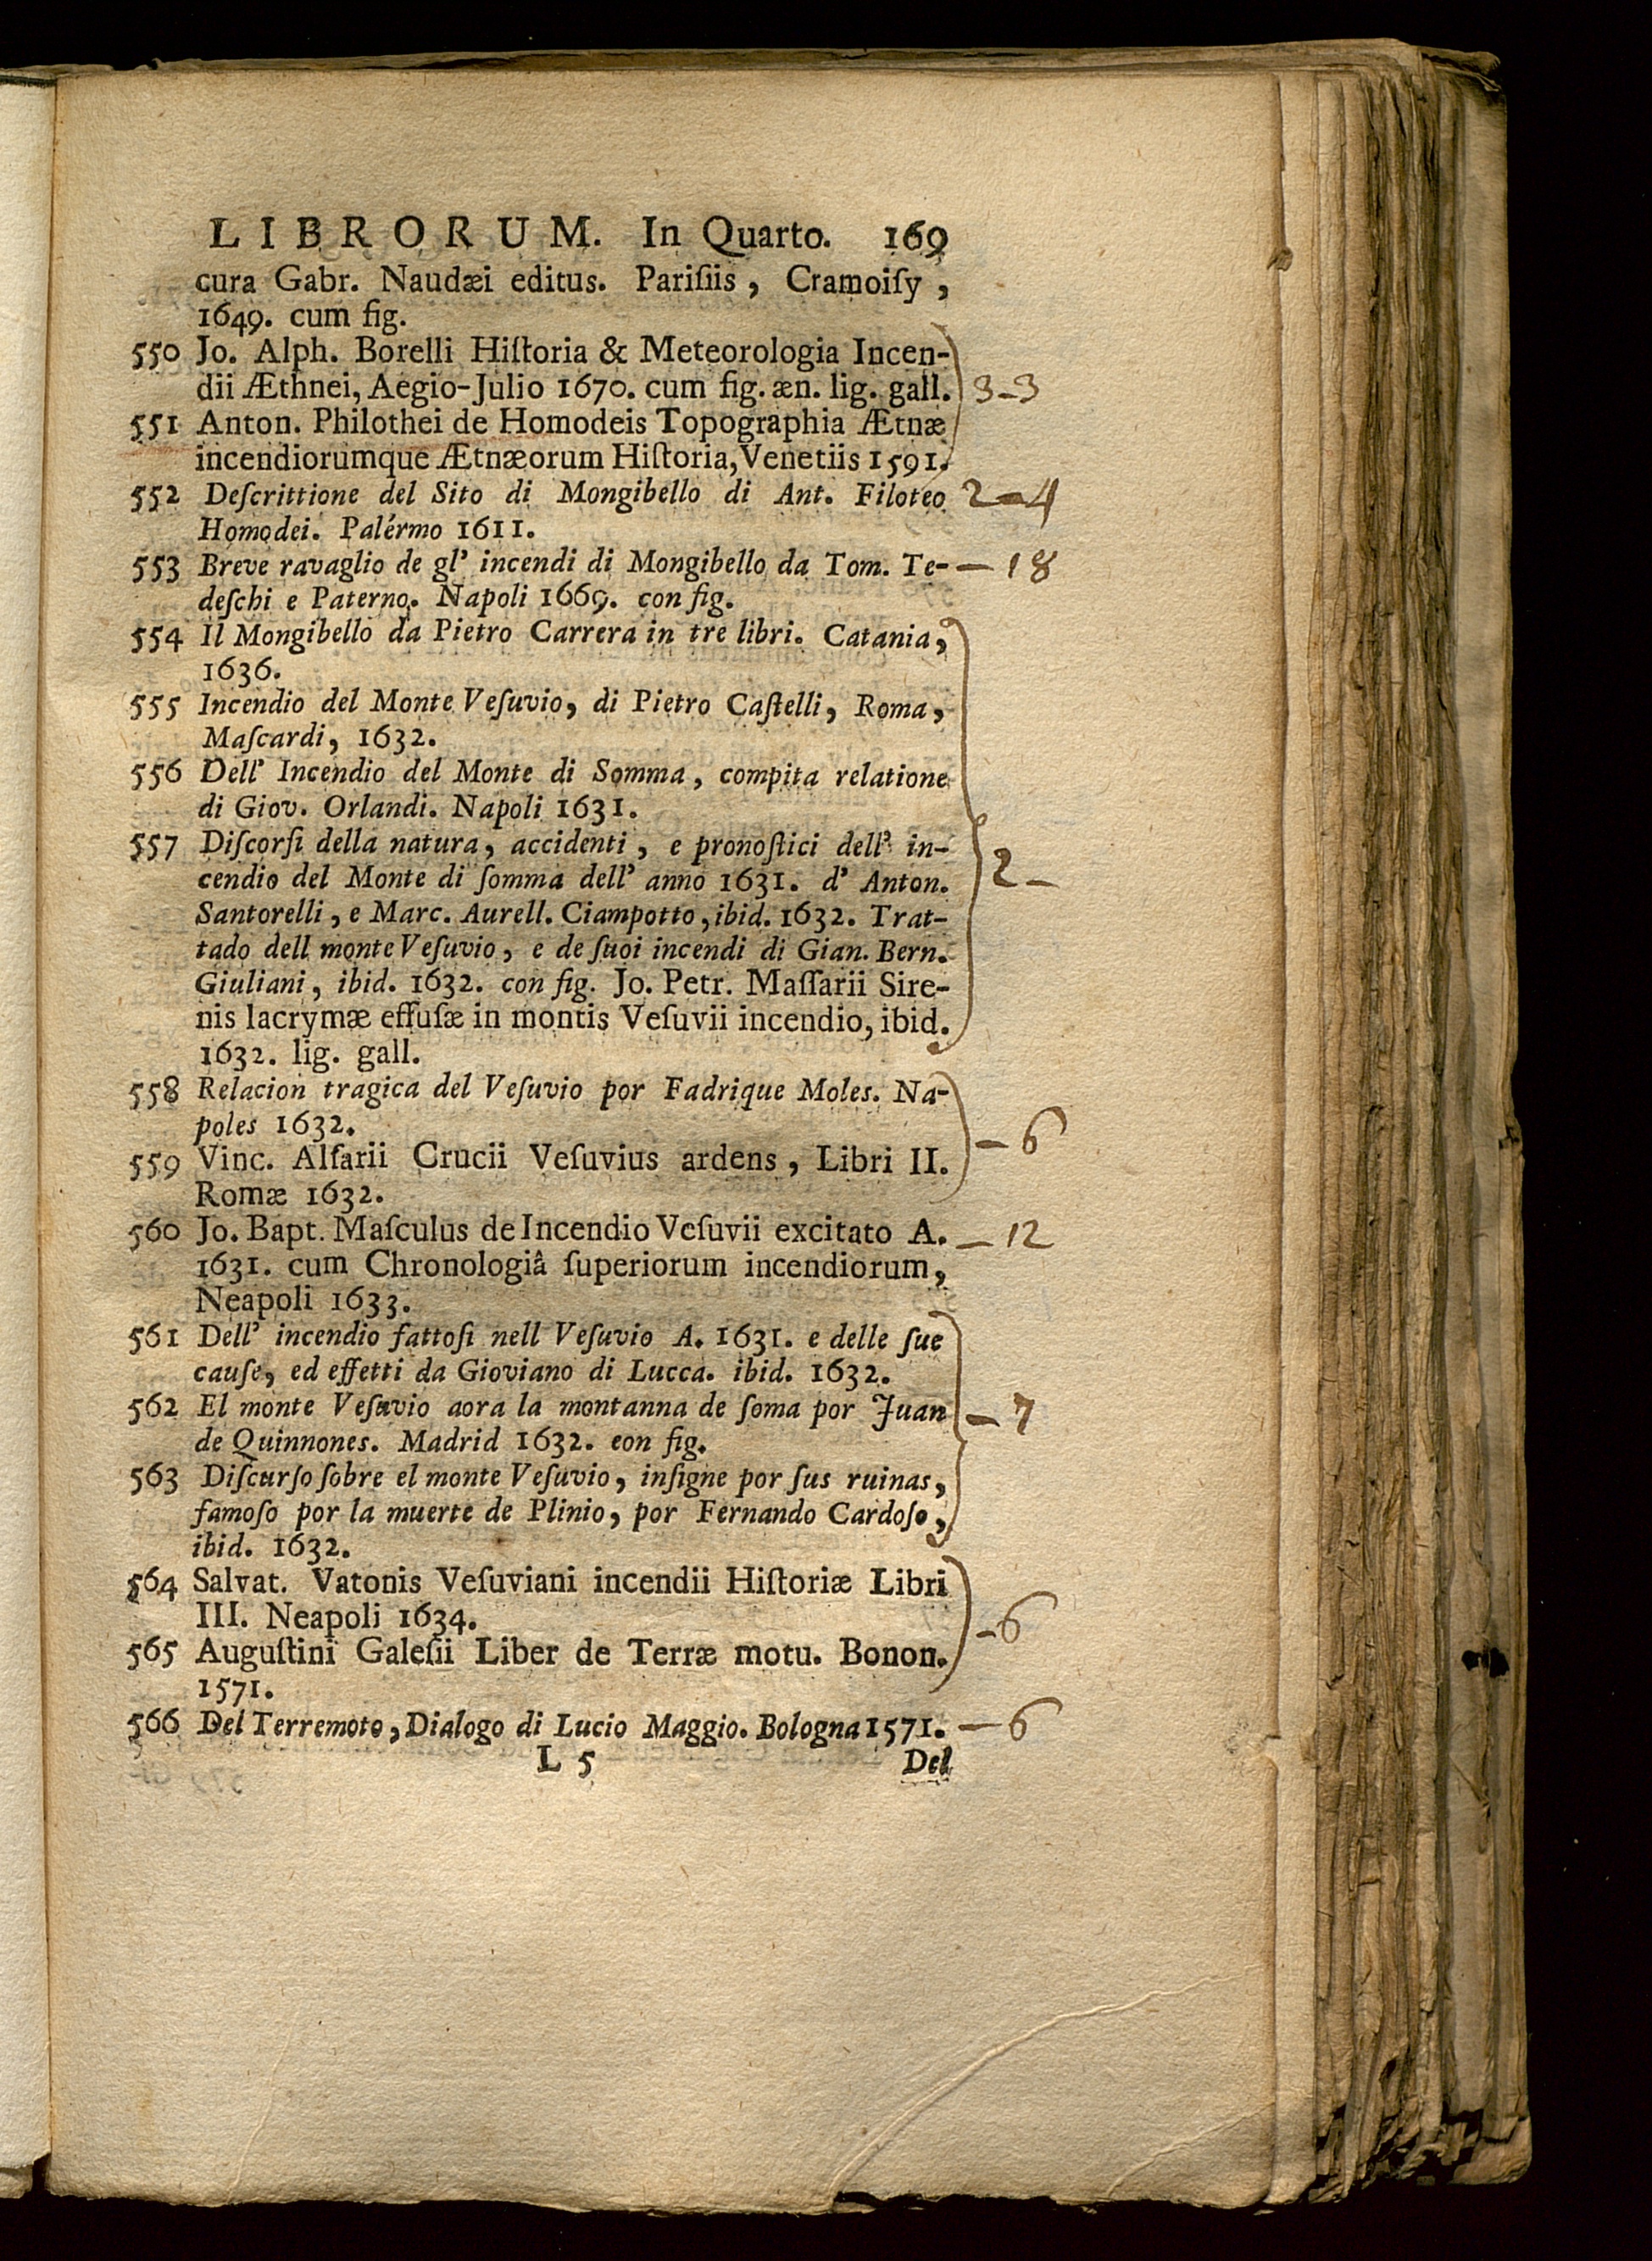 LIBRORUM. In Quarto. 169
cura Gabr. Naudæi editus. Pariſiis, Cramoiſy,
1649. cum fig.
550 Jo. Alph. Borelli Hiſtoria & Meteorologia Incen-
dii Æthnei, Aegio-Julio 1670. cum fig. æn. lig. gall. 3-3
551 Anton. Philothei de Homodeis Topographia Ætnæ
incendiorumque Ætnæorum Hiſtoria, Venetiis 1591.
552 Deſcrittione del Sito di Mongibello di Ant. Filoteo 2-4
Homodei. Palérmo 1611.
553 Breve ravaglio de gl' incendi di Mongibello da Tom. Te- — 18
deſchi e Paterno. Napoli 1669. con fig.
554 Il Mongibello da Pietro Carrera in tre libri. Catania,
1636.
555 Incendio del Monte Veſuvio, di Pietro Caſtelli, Roma,
Maſcardi, 1632.
556 Dell' Incendio del Monte di Somma, compita relatione
di Giov. Orlandi. Napoli 1631.
557 Diſcorſi della natura, accidenti, e pronoſtici dell' in-
cendio del Monte di ſomma dell' anno 1631. d' Anton. 2-
Santorelli, e Marc. Aurell. Ciampotto, ibid. 1632. Trat-
tado dell monte Veſuvio, e de ſuoi incendi di Gian. Bern.
Giuliani, ibid. 1632. con fig. Jo. Petr. Maſſarii Sire-
nis lacrymæ effuſæ in montis Veſuvii incendio, ibid.
1632. lig. gall.
558 Relacion tragica del Veſuvio por Fadrique Moles. Na-
poles 1632. - 6
559 Vinc. Alſarii Crucii Veſuvius ardens, Libri II.
Romæ 1632.
560 Jo. Bapt. Maſculus de Incendio Veſuvii excitato A. - 12
1631. cum Chronologiâ ſuperiorum incendiorum,
Neapoli 1633.
561 Dell' incendio fattoſi nell Veſuvio A. 1631. e delle ſue
cauſe, ed effetti da Gioviano di Lucca. ibid. 1632.
562 El monte Veſuvio aora la montanna de ſoma por Juan - 7
de Quinnones. Madrid 1632. eon fig.
563 Diſcurſo ſobre el monte Veſuvio, inſigne por ſus ruinas,
famoſo por la muerte de Plinio, por Fernando Cardoſo,
ibid. 1632.
564 Salvat. Vatonis Veſuviani incendii Hiſtoriæ Libri
III. Neapoli 1634. - 6
565 Auguſtini Galeſii Liber de Terræ motu. Bonon.
1571.
566 Del Terremoto, Dialogo di Lucio Maggio. Bologna 1571. — 6
L 5 Del